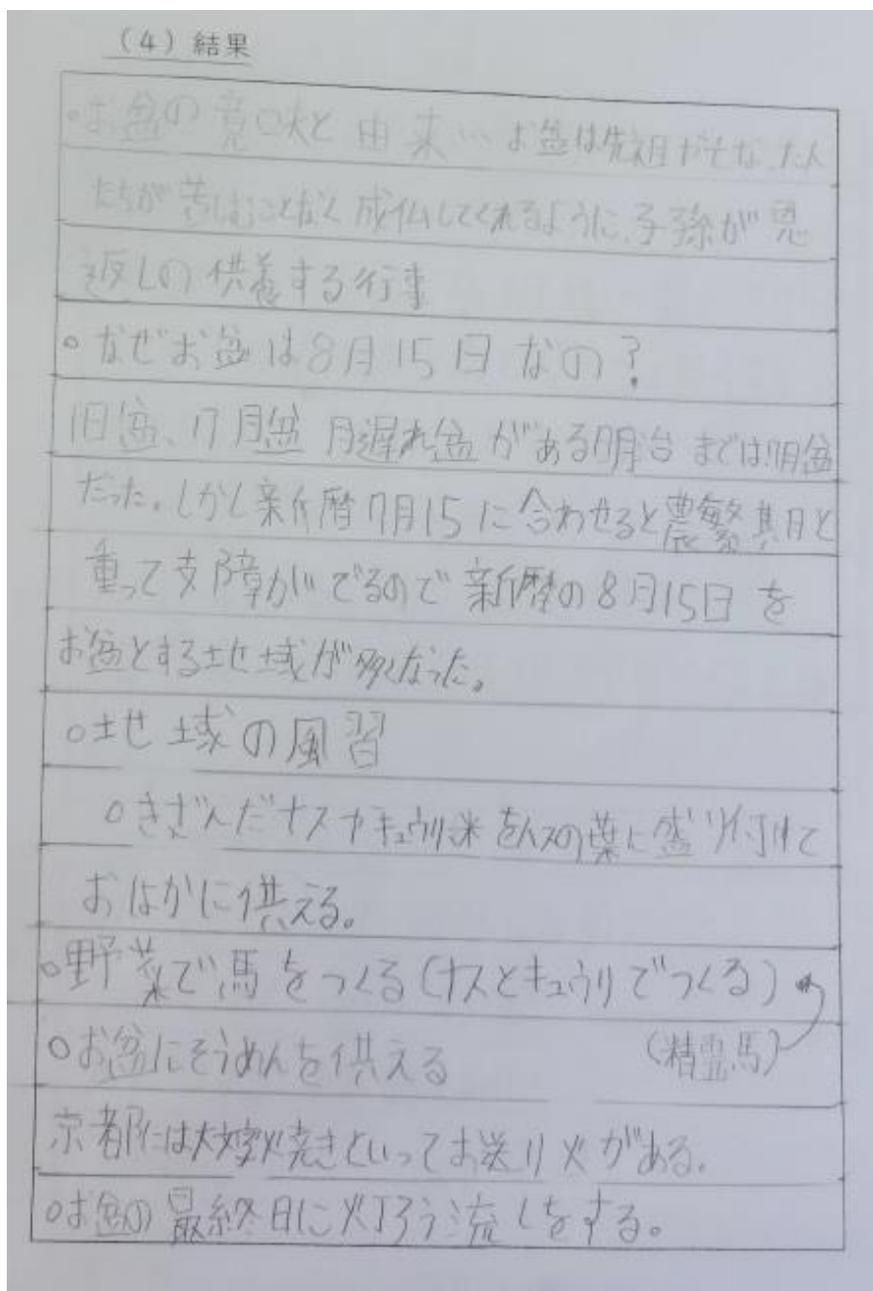 (4) 結果
・お盆の意味と由来… お盆は先祖やなくなった人
たちが苦しむことなく成仏してくれるように、子孫が恩
返しの供養する行事
○なぜお盆は8月15日なの?
旧盆、7月盆 月遅れ盆がある明治までは7月盆
だった。しかし新暦7月15に合わせると農繁期日と
重って支障がでるので新暦の8月15日を
お盆とする地域が多くなった。
○地域の風習
○きざんだナスやキュウリ米をハスの葉に盛り付けて
おはかに供える。
○野菜で馬をつくる(ナスとキュウリでつくる)
○お盆にそうめんを供える (精霊馬)
京都には大文字焼きといってお送り火がある。
○お盆の最終日に灯ろう流しをする。